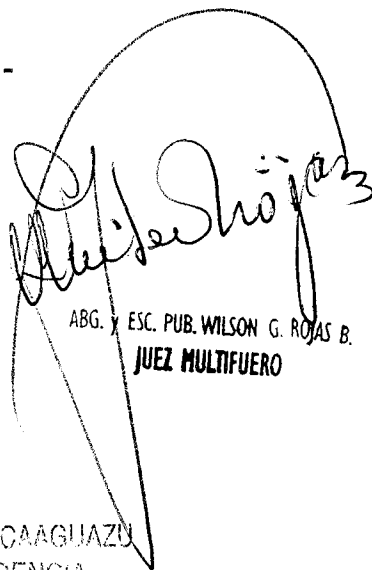 -
Wilson Rojas
ABG. y ESC. PUB. WILSON G. ROJAS B.
JUEZ MULTIFUERO
CAAGUAZU